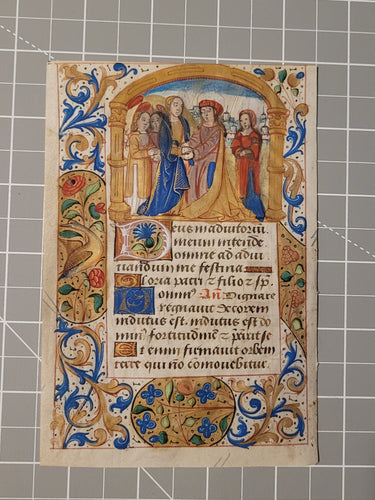 Deus in adiutoriũ
meum intende
domine ad adiu
uandum me festina
Gloria patri & filio & sp.
Domin9 Añ. Dignare
regnauit decorem
indutus est indutus est do
min9 fortitudinẽ & p̃cĩxit se
Et enĩ firmauit orbem
terre qui nõ cõmouebitur